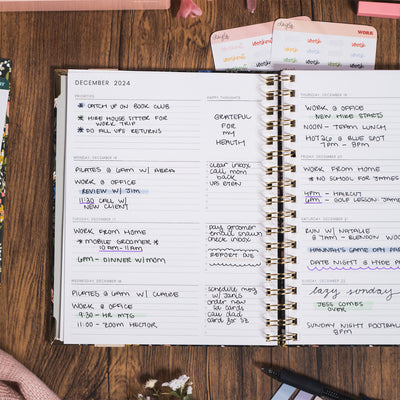 DECEMBER 2024
PRIORITIES
* CATCH UP ON BOOK CLUB
* HIRE HOUSE SITTER FOR
WORK TRIP
* DO ALL UPS RETURNS
HAPPY THOUGHTS
GRATEFUL
FOR
MY
HEALTH
MONDAY, DECEMBER 16
PILATES @ 6AM W/ ABRA
WORK @ OFFICE
REVIEW W/ JIM
11:30 CALL W/
NEW CLIENT
clear inbox
call mom
back
UPS @
TUESDAY, DECEMBER 17
WORK FROM HOME
* MOBILE GROOMER *
10AM-11AM
6PM - DINNER W/MOM
pay groomer
email shawn
check inbox
REPORT DUE
WEDNESDAY, DECEMBER 18
PILATES @ 6AM W/ CLAIRE
WORK @ OFFICE
9:30 - HR MTG
11:00 - ZOOM HECTOR
schedule mtg
w/ Janis
order new
ID cards
call dad
card for SZ
WORK
THURSDAY, DECEMBER 19
WORK @ OFFICE
NEW HIRE STARTS
NOON - TEAM LUNCH
@ BLUE SPOT
7PM - 9PM
FRIDAY, DECEMBER 20
WORK FROM HOME
* NO SCHOOL FOR JAMES
4PM - HAIRCUT
6PM - GOLF LESSON: JAMES
SATURDAY, DECEMBER 21
RUN W/ NATALIE
@ 7AM - WOOD
HANNAH'S GAME DAY
DATE NIGHT @ HYDE
SUNDAY, DECEMBER 22
lazy sunday
JESS COMES
OVER
SUNDAY NIGHT FOOTBALL
8PM